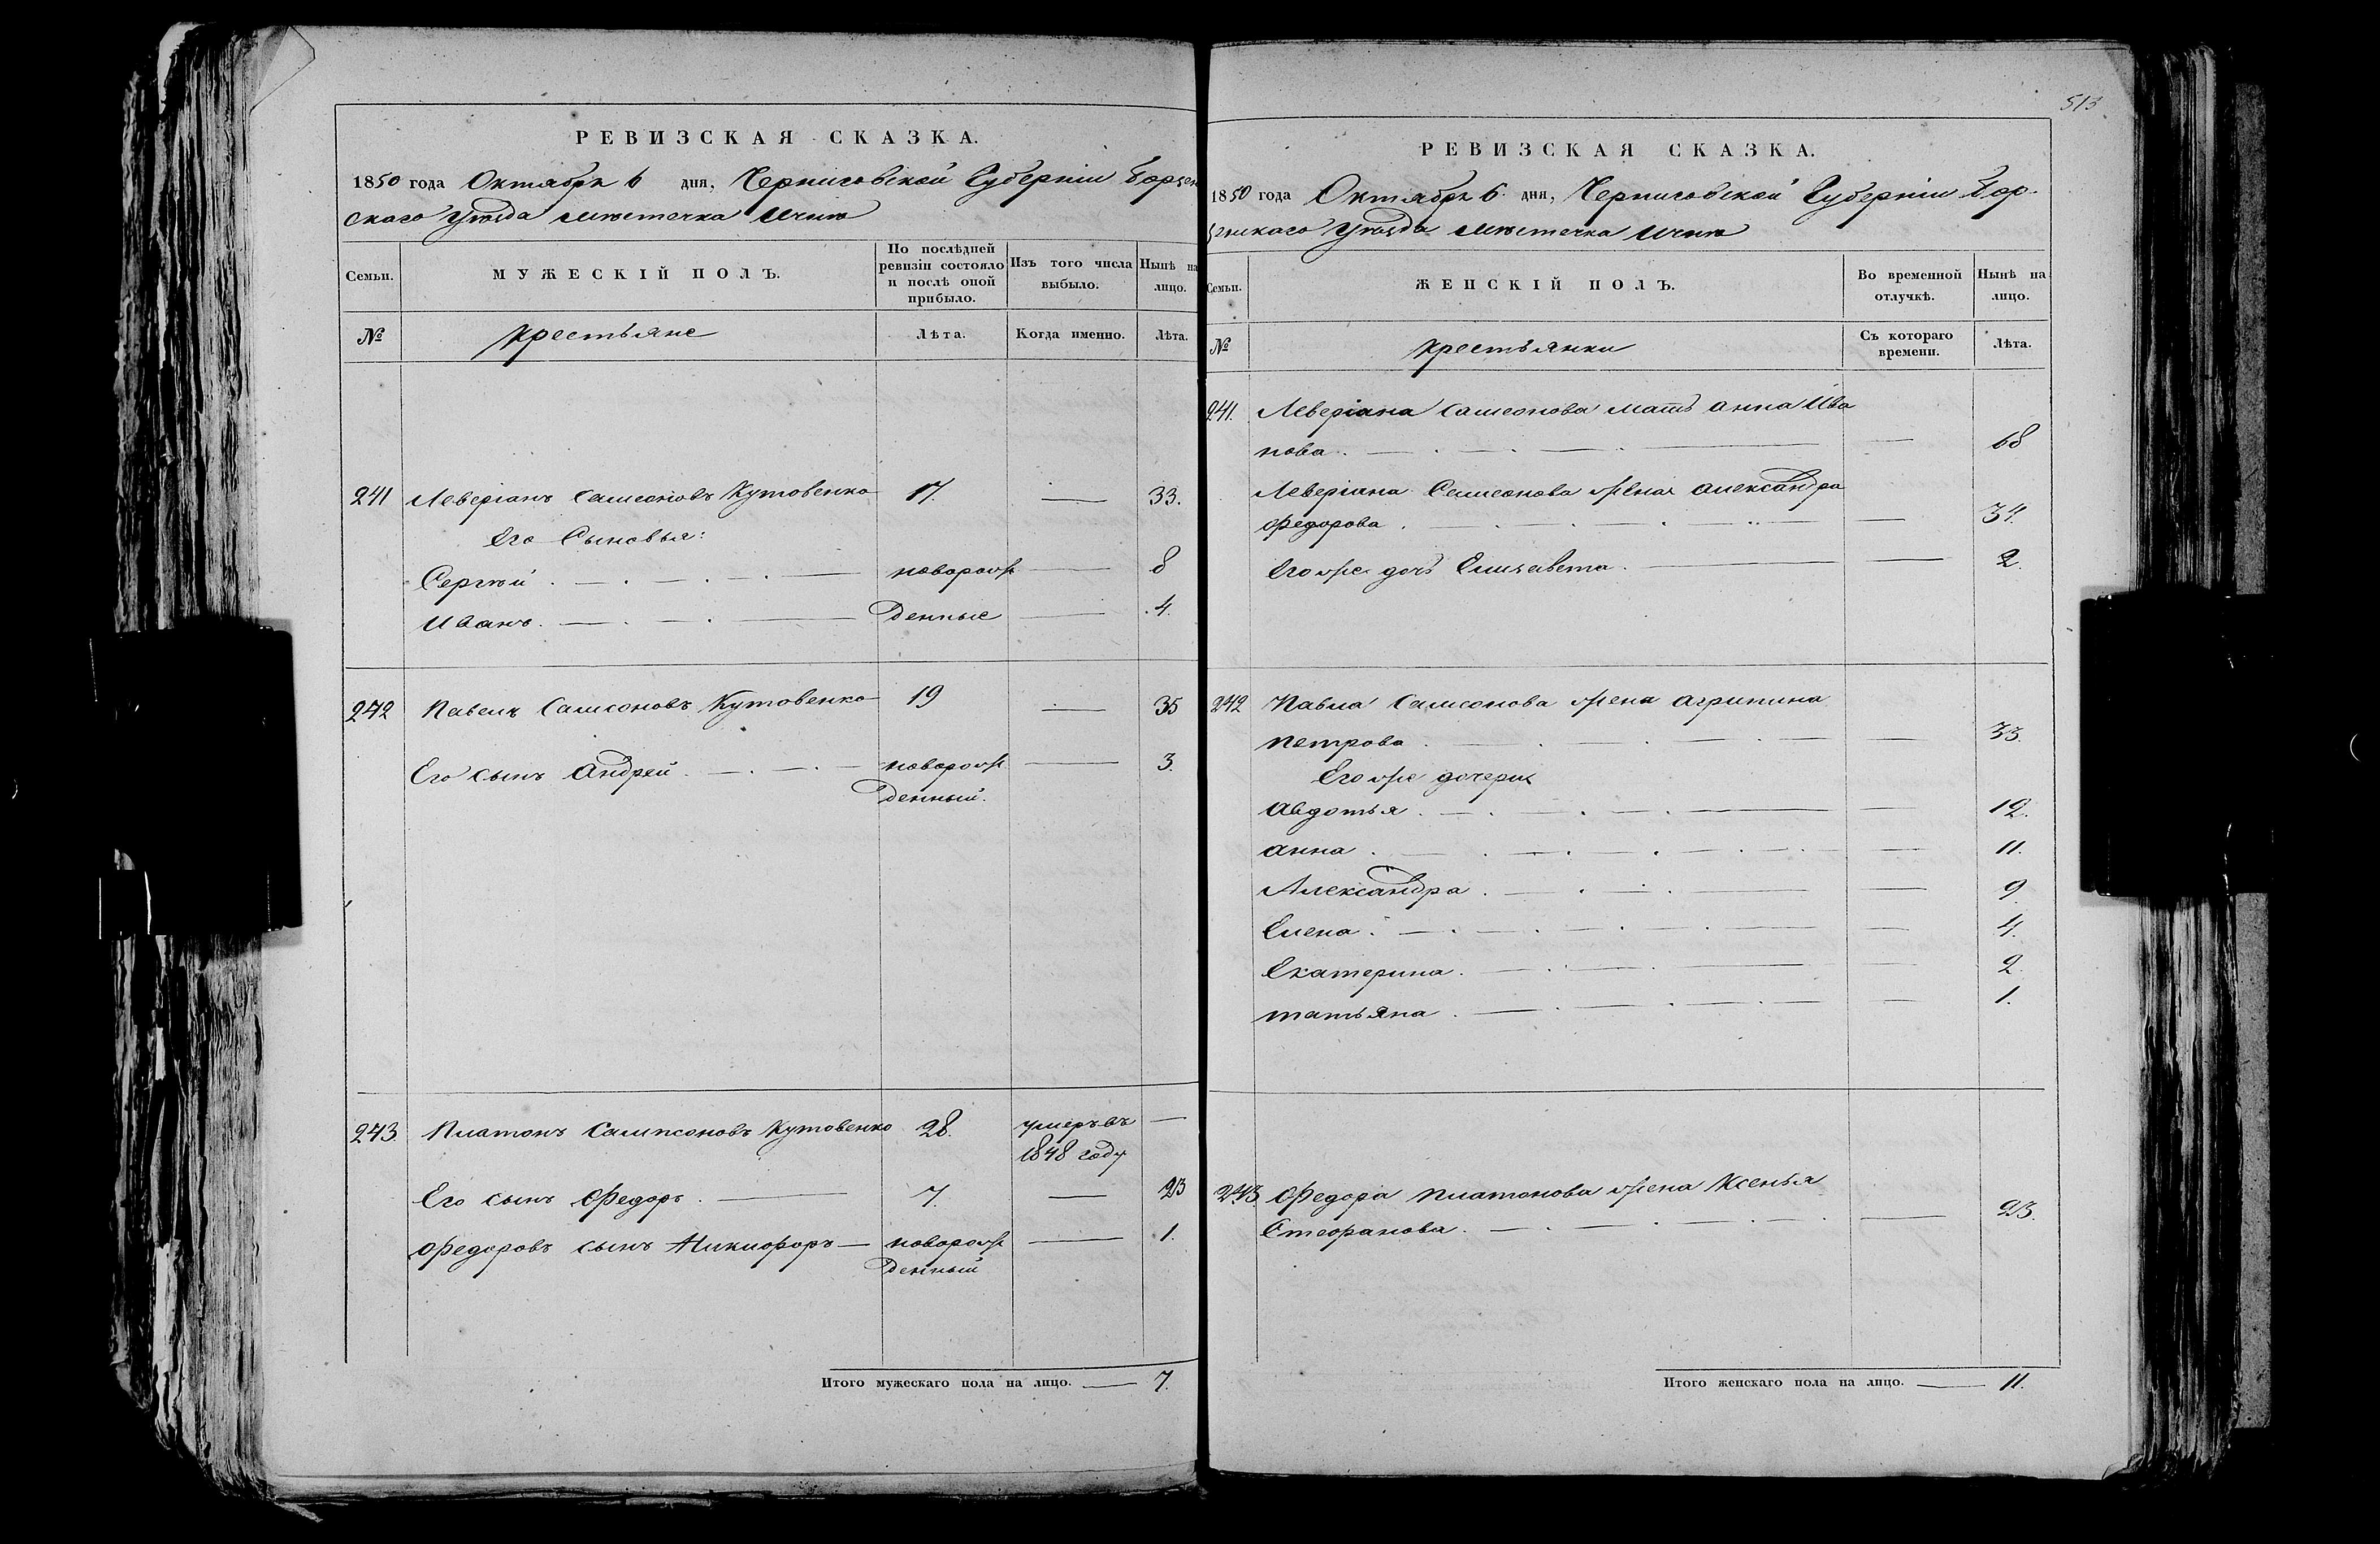 РЕВИЗСКАЯ СКАЗКА.
1850 года Октября 6 дня, Черниговской Губерніи Борзен
скаго Уѣзда Мѣстечка Ични
Семьи.
МУЖЕСКІЙ ПОЛЪ.
По послѣдней ревизіи состояло и послѣ оной прибыло.
Изъ того числа выбыло.
Нынѣ на лицо.
№
Крестьяне
Лѣта.
Когда именно.
Лѣта.
241 Леверіанъ Самсоновъ Кутовенко 17. — 33.
Его Сыновья:
Сергѣй новорож — 8
Иванъ денные — 4.
242 Павелъ Самсоновъ Кутовенко 19 — 35
Его сынъ Андрей новорож — 3.
денный.
243 Платонъ Сампсоновъ Кутовенко 28. умеръ въ —
1848 году
Его сынъ Федоръ 7. — 23
Федоровъ сынъ Никифоръ — новорож — 1.
денный
Итого мужескаго пола на лицо. — 7.
513
РЕВИЗСКАЯ СКАЗКА.
1850 года Октября 6 дня, Черниговской Губерніи Бор-
зенскаго Уѣзда Мѣстечка Ични
Семьи.
ЖЕНСКІЙ ПОЛЪ.
Во временной отлучкѣ.
Нынѣ на лицо.
№
Крестьянки
Съ котораго времени.
Лѣта.
241. Леверіана Самсонова мать Анна Ива
нова — 68
Леверіана Самсонова жена Александра
Федорова — 34.
Его же дочь Елисавета — 2.
242 Павла Самсонова жена Агрипина
Петрова — 33.
Его же дочери
Авдотья — 12.
Анна — 11.
Александра — 9.
Елена — 4.
Екатерина — 2.
Татьяна — 1.
243. Федора Платонова жена Ксенья
Стефанова — 23.
Итого женскаго пола на лицо. — 11.